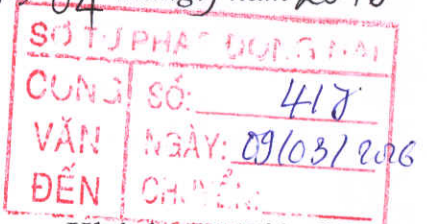 04
SỞ TƯ PHÁP ĐỒNG NAI
CÔNG VĂN ĐẾN
SỐ:
NGÀY: 09/03/2026
CHUYỂN: